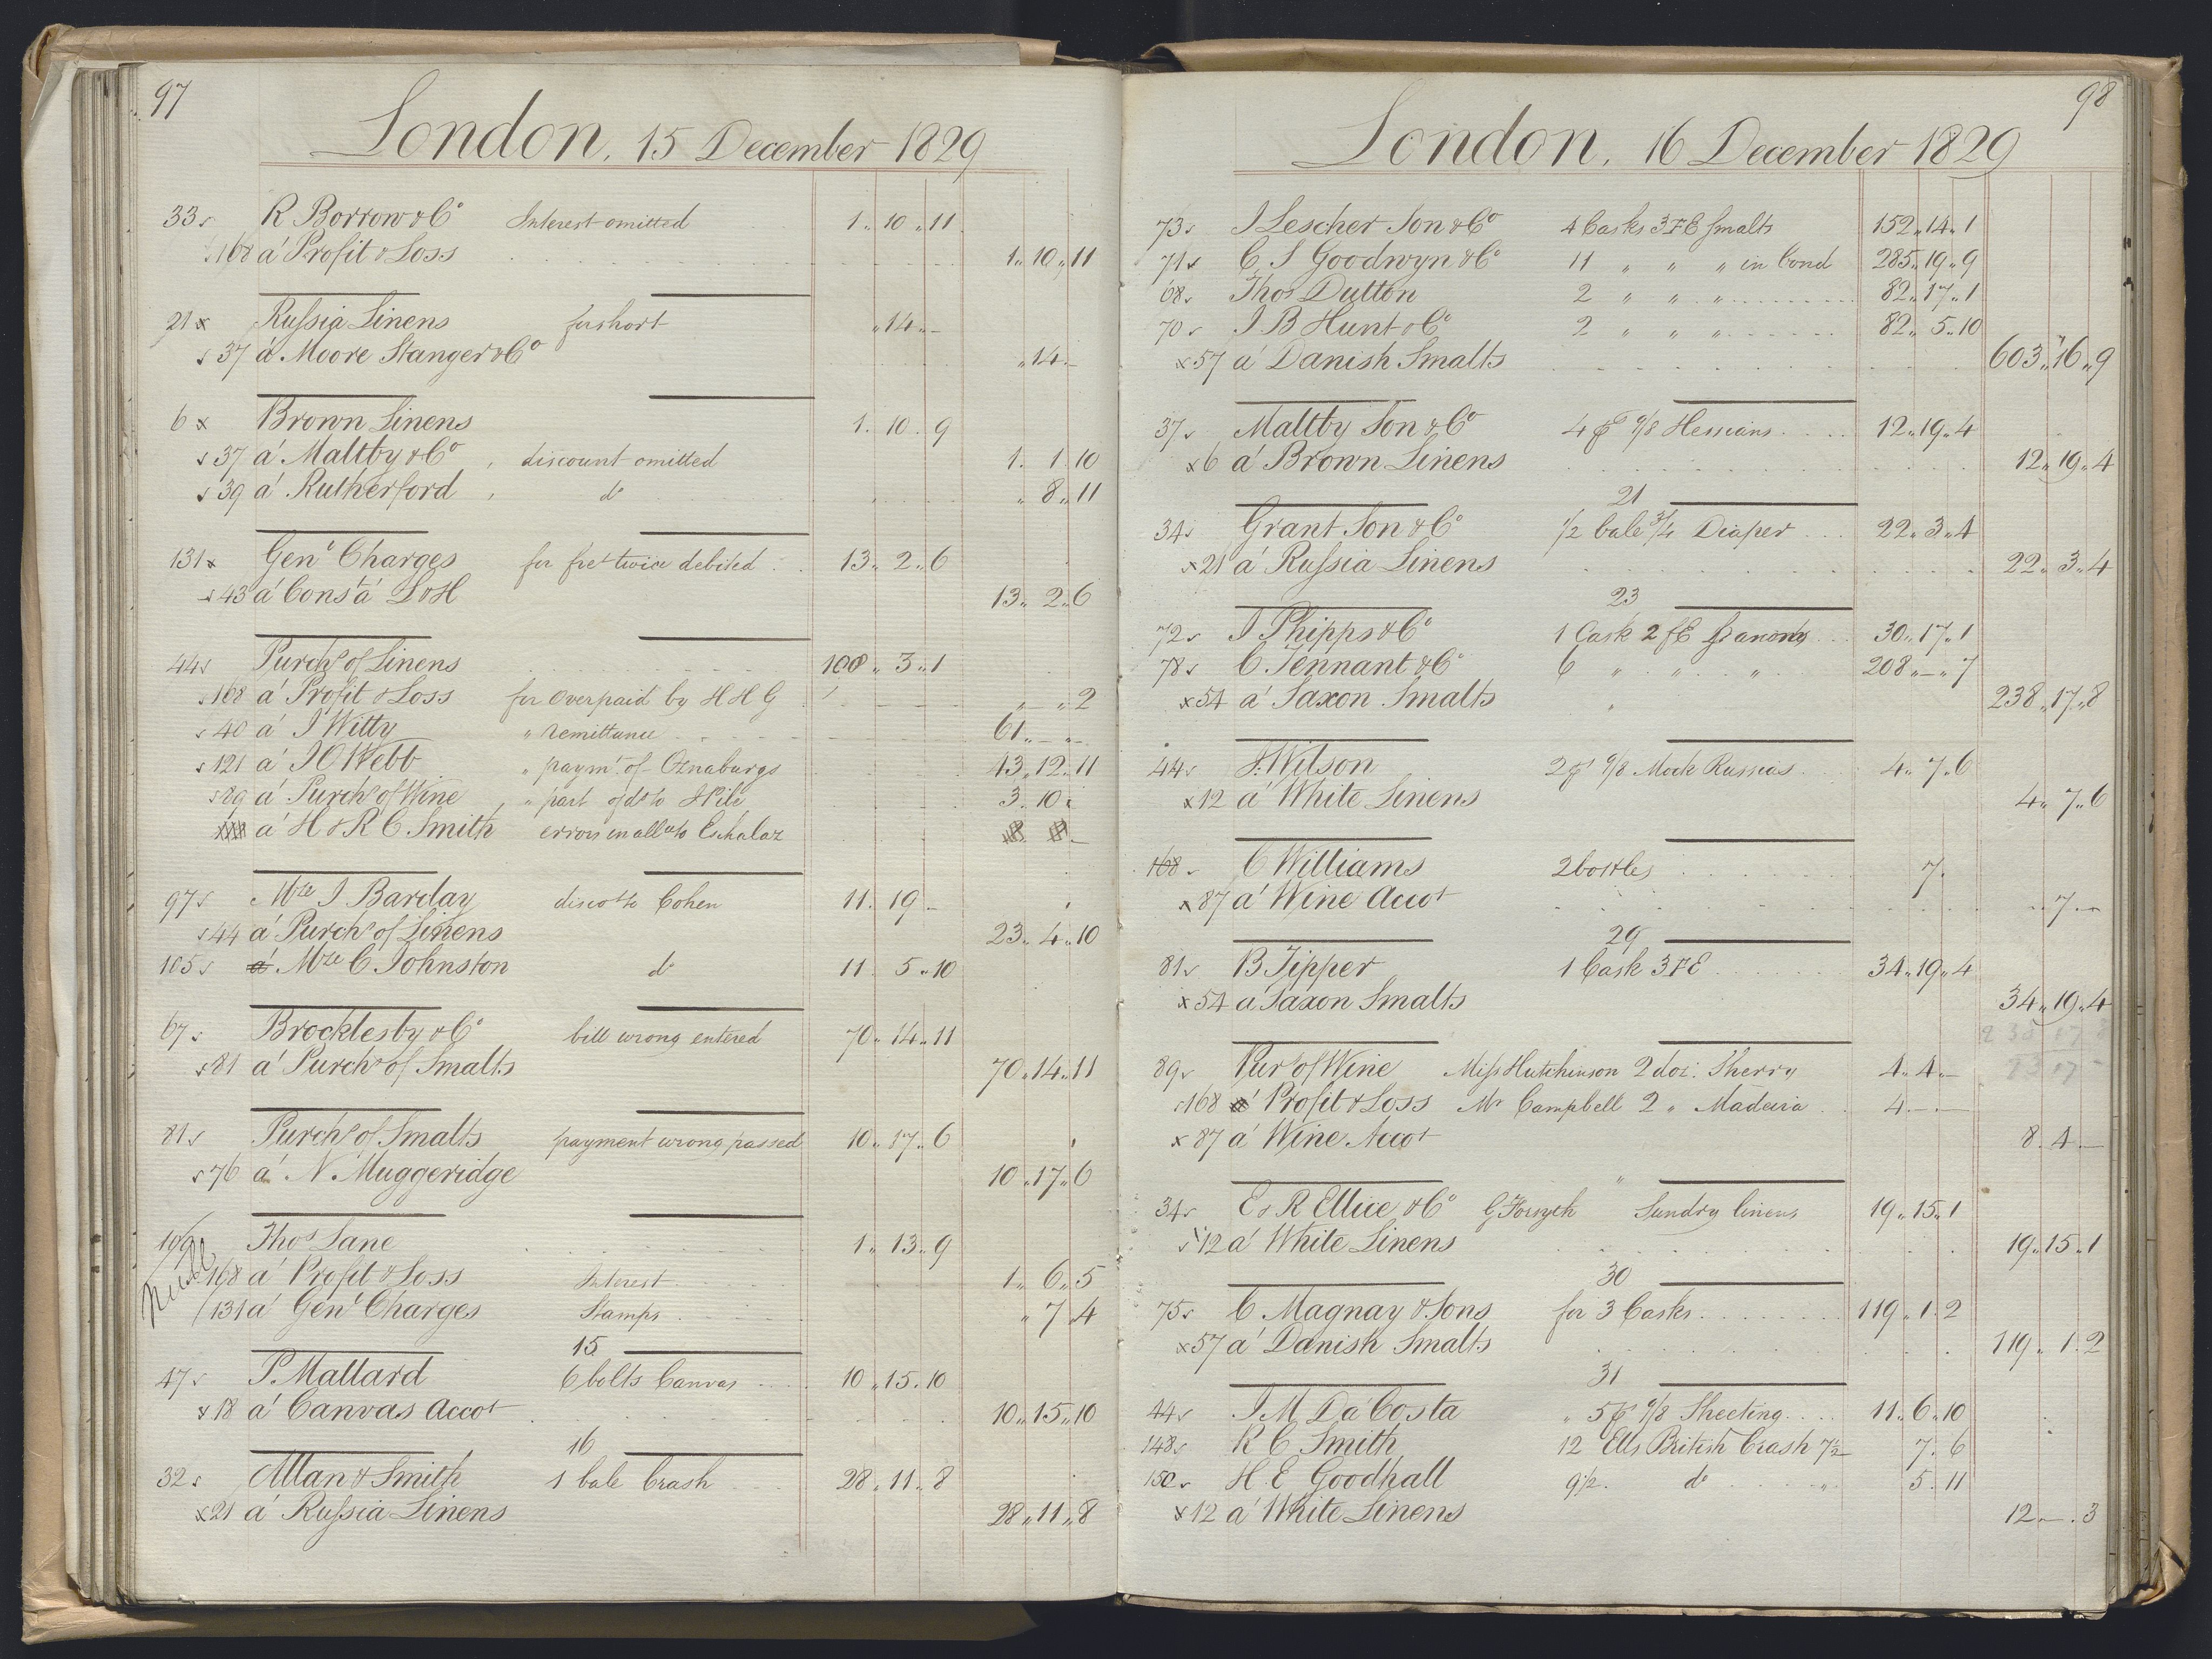 97
London, 15 December 1829
33 R Borrow & Co Interest omitted 1 „ 10 „ 11
168 a' Profit & Loss 1 „ 10 „ 11
21 x Russia Linens for short „ 14 „ –
37 a' Moore Stanger & Co „ 14 „ –
6 x Brown Linens 1 . 10 . 9
37 a' Maltby & Co , discount omitted 1 . 1 . 10
39 a' Rutherford , do „ 8 „ 11
131 x Genl Charges for twice debited 13 „ 2 „ 6
43 a' Const a' L & H 13 „ 2 „ 6
44 Purchs of Linens 100 „ 3 „ 1
168 a' Profit & Loss for Overpaid by H H G „ – „ 2
40 a' J Witty „ remittance 61 „ – „ –
121 a' J O Webb „ paymt of Oznaburgs 43 „ 12 „ 11
89 a' Purchs of Wine , „ part of do to 3 . 10 .
a' H & R C Smith errors in allce to
97 Mdze J Barclay discot to Cohen 11 . 19 –
44 a' Purchs of Linens 23 „ 4 „ 10
105 a' Mdze C Johnston do 11 . 5 „ 10
67 Brocklesby & Co bill wrong entered 70 „ 14 „ 11
81 a' Purchs of Smalts 70 „ 14 „ 11
81 Purchs of Smalts payment wrong passed 10 „ 17 „ 6
76 a' N. Muggeridge 10 „ 17 „ 6
Thos Lane 1 „ 13 „ 9
168 a' Profit & Loss Interest 1 „ 6 „ 5
Null
131 a' Genl Charges Stamps „ 7 „ 4
15
47 P. Mallard 6 bolts Canvas 10 „ 15 . 10
x 18 a' Canvas Accot 10 „ 15 „ 10
16
32 Allan & Smith 1 bale Crash 28 „ 11 „ 8
x 21 a' Russia Linens 28 „ 11 „ 8
98
London, 16 December 1829
73 J Lescher Son & Co 4 Casks 3 F E Smalts 152 „ 14 „ 1
71 C J Goodwyn & Co 11 „ „ „ in bond 285 „ 19 „ 9
68 Thos Dutton 2 „ „ „ 82 „ 17 „ 1
70 J. B Hunt & Co 2 „ „ „ 82 „ 5 „ 10
x 57 a' Danish Smalts 603 „ 16 „ 9
37 Maltby Son & Co 4 ps 9/8 Hessians 12 „ 19 „ 4
x 6 a' Brown Linens 12 „ 19 „ 4
21
34 Grant Son & Co 1/2 bale 3/4 Diaper 22 „ 3 „ 4
x 21 a' Russia Linens 22 „ 3 „ 4
23
72 J Phipps & Co 1 Cask 2 f E 30 „ 17 „ 1
78 C. Tennant & Co 6 „ „ „ 208 „ – „ 7
x 54 a' Saxon Smalts 238 „ 17 „ 8
44 J. Wilson 2 ps 9/8 Mock Russias 4 „ 7 „ 6
x 12 a' White Linens 4 „ 7 „ 6
168 C Williams 2 bottles 7 .
x 87 a' Wine Accot 7 –
29
81 B Tipper 1 Cask 3 F E 34 „ 19 „ 4
x 54 a' Saxon Smalts 34 „ 19 „ 4
238 17 8
89 Purs of Wine Miss Hutchinson 2 doz. Sherry 4 „ 4 „ –
168 a' Profit & Loss Mr Campbell 2 „ Madeira 4 „ – „ –
x 87 a' Wine Accot 8 . 4 . –
34 E & R Ellice & Co G Forsyth Sundry linens 19 „ 15 „ 1
12 a' White Linens 19 „ 15 „ 1
30
75 C Magnay & Sons for 3 Casks 119 „ 1 . 2
x 57 a' Danish Smalts 119 „ 1 . 2
31
44 J M Da Costa „ 5 ps 9/8 Sheeting 11 „ 6 „ 10
148 R C Smith 12 Ells British Crash 7 1/2 7 . 6
150 H E Goodhall 9 1/2 . do „ 5 . 11
x 12 a' White Linens 12 „ – „ 3